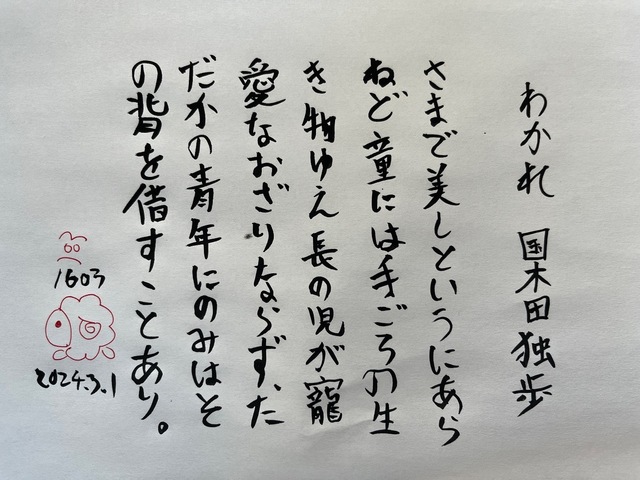 わかれ 国木田独歩
さまで美しというにあら
ねど童には手ごろの生
き物ゆえ長の児が寵
愛なおざりならず、た
だかの青年にのみはそ
の背を借すことあり。
1603
2024.3.1